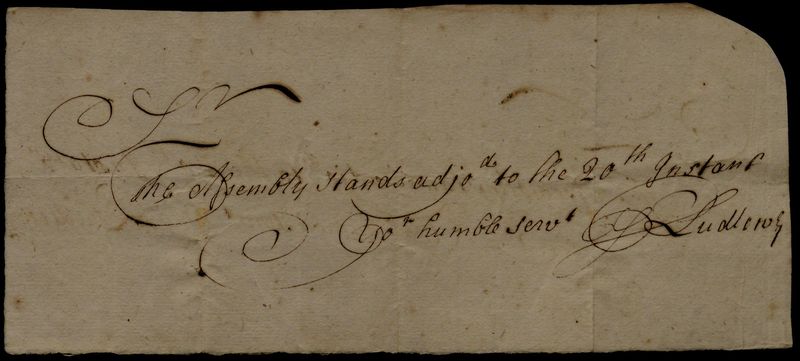 Sr
The Assembly Stands adjod to the 20th Instant
Yor humble servt Ludlow